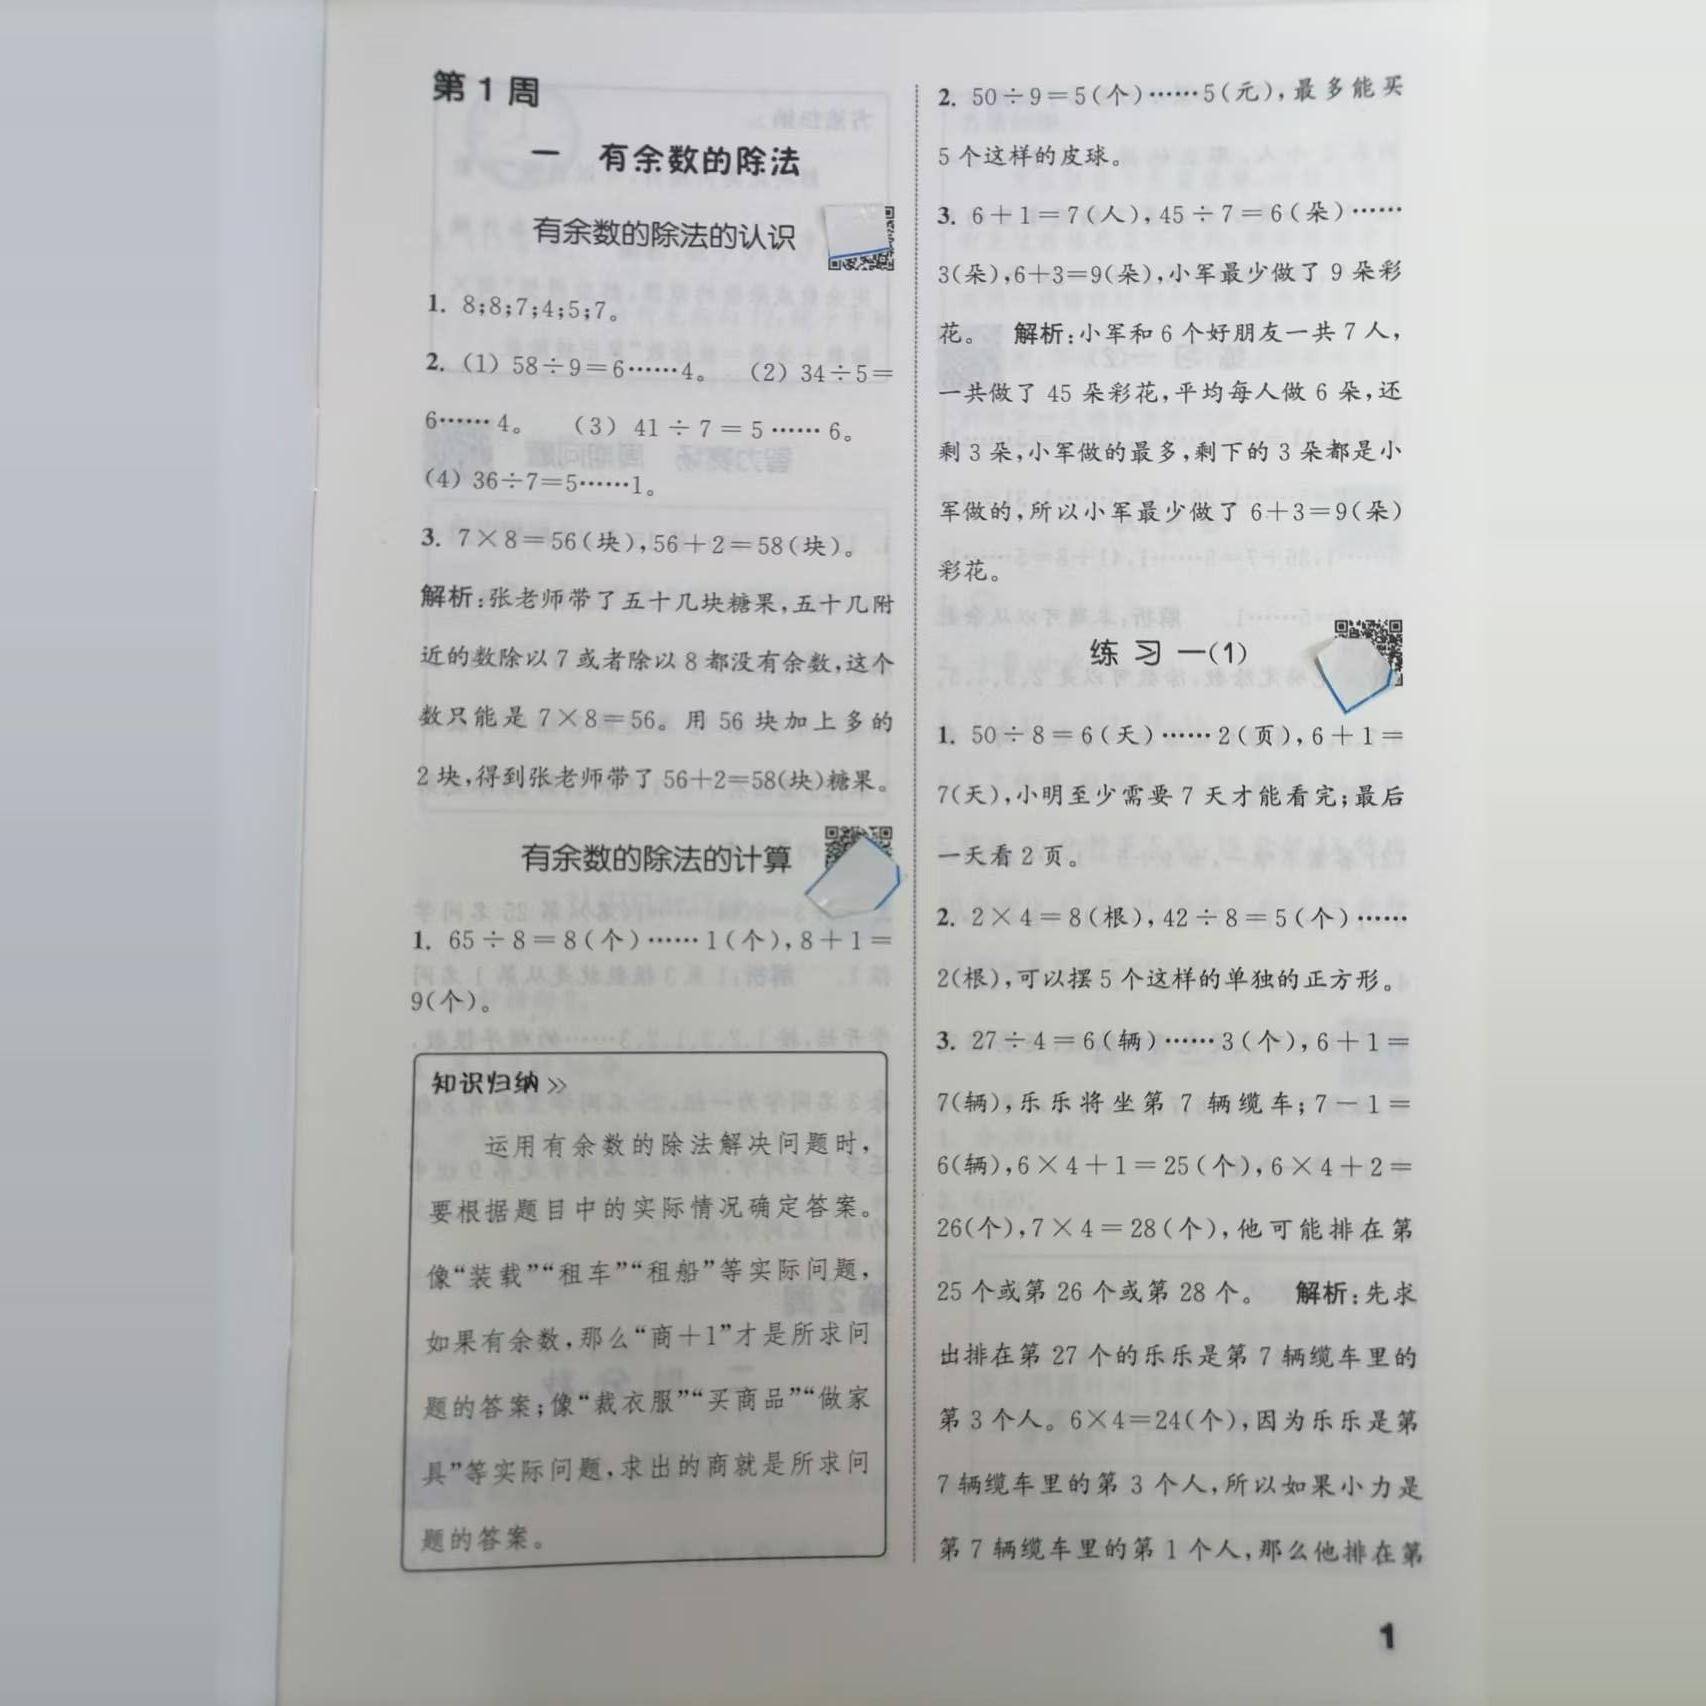 第1周
一 有余数的除法
有余数的除法的认识
1. 8;8;7;4;5;7。
2. (1) 58÷9=6……4。 (2) 34÷5=
6……4。 (3) 41÷7=5……6。
(4) 36÷7=5……1。
3. 7×8=56(块),56+2=58(块)。
解析:张老师带了五十几块糖果,五十几附
近的数除以7或者除以8都没有余数,这个
数只能是7×8=56。用56块加上多的
2块,得到张老师带了56+2=58(块)糖果。
有余数的除法的计算
1. 65÷8=8(个)……1(个),8+1=
9(个)。
知识归纳»
运用有余数的除法解决问题时,
要根据题目中的实际情况确定答案。
像“装载”“租车”“租船”等实际问题,
如果有余数,那么“商+1”才是所求问
题的答案;像“裁衣服”“买商品”“做家
具”等实际问题,求出的商就是所求问
题的答案。
2. 50÷9=5(个)……5(元),最多能买
5个这样的皮球。
3. 6+1=7(人),45÷7=6(朵)……
3(朵),6+3=9(朵),小军最少做了9朵彩
花。 解析:小军和6个好朋友一共7人,
一共做了45朵彩花,平均每人做6朵,还
剩3朵,小军做的最多,剩下的3朵都是小
军做的,所以小军最少做了6+3=9(朵)
彩花。
练习一(1)
1. 50÷8=6(天)……2(页),6+1=
7(天),小明至少需要7天才能看完;最后
一天看2页。
2. 2×4=8(根),42÷8=5(个)……
2(根),可以摆5个这样的单独的正方形。
3. 27÷4=6(辆)……3(个),6+1=
7(辆),乐乐将坐第7辆缆车;7-1=
6(辆),6×4+1=25(个),6×4+2=
26(个),7×4=28(个),他可能排在第
25个或第26个或第28个。 解析:先求
出排在第27个的乐乐是第7辆缆车里的
第3个人。6×4=24(个),因为乐乐是第
7辆缆车里的第3个人,所以如果小力是
第7辆缆车里的第1个人,那么他排在第
1